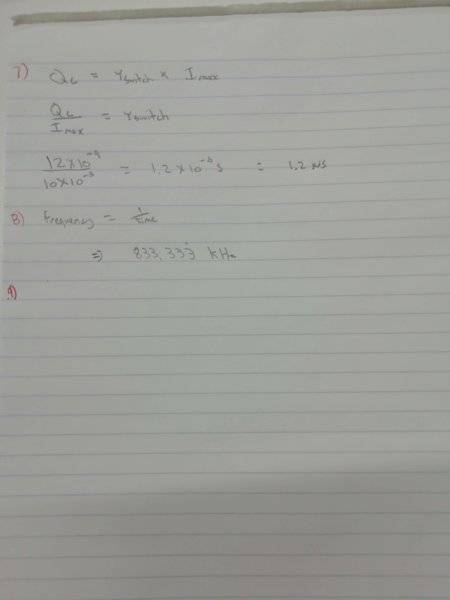 7) Qc = Yswitch × Imax
Qc / Imax = Yswitch
12×10⁻⁹ / 10×10⁻³ = 1.2×10⁻⁶ s = 1.2 µs
8) Frequency = 1/time
⇒ 833.333̇ kHz
9)